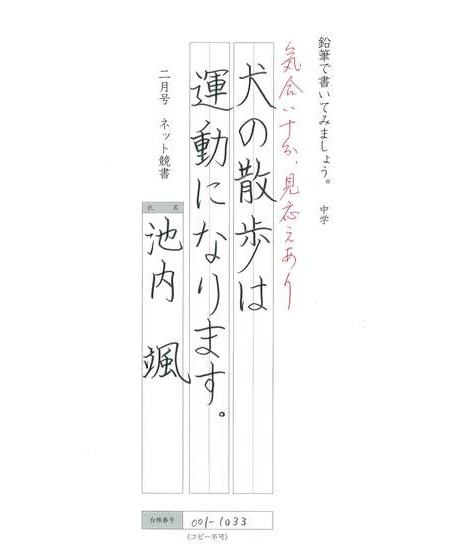 鉛筆で書いてみましょう。 中学
気合い十分、見応えあり
犬の散歩は
運動になります。
二月号 ネット競書
氏 名
池内 颯
台帳番号
001-1033
(コピー不可)